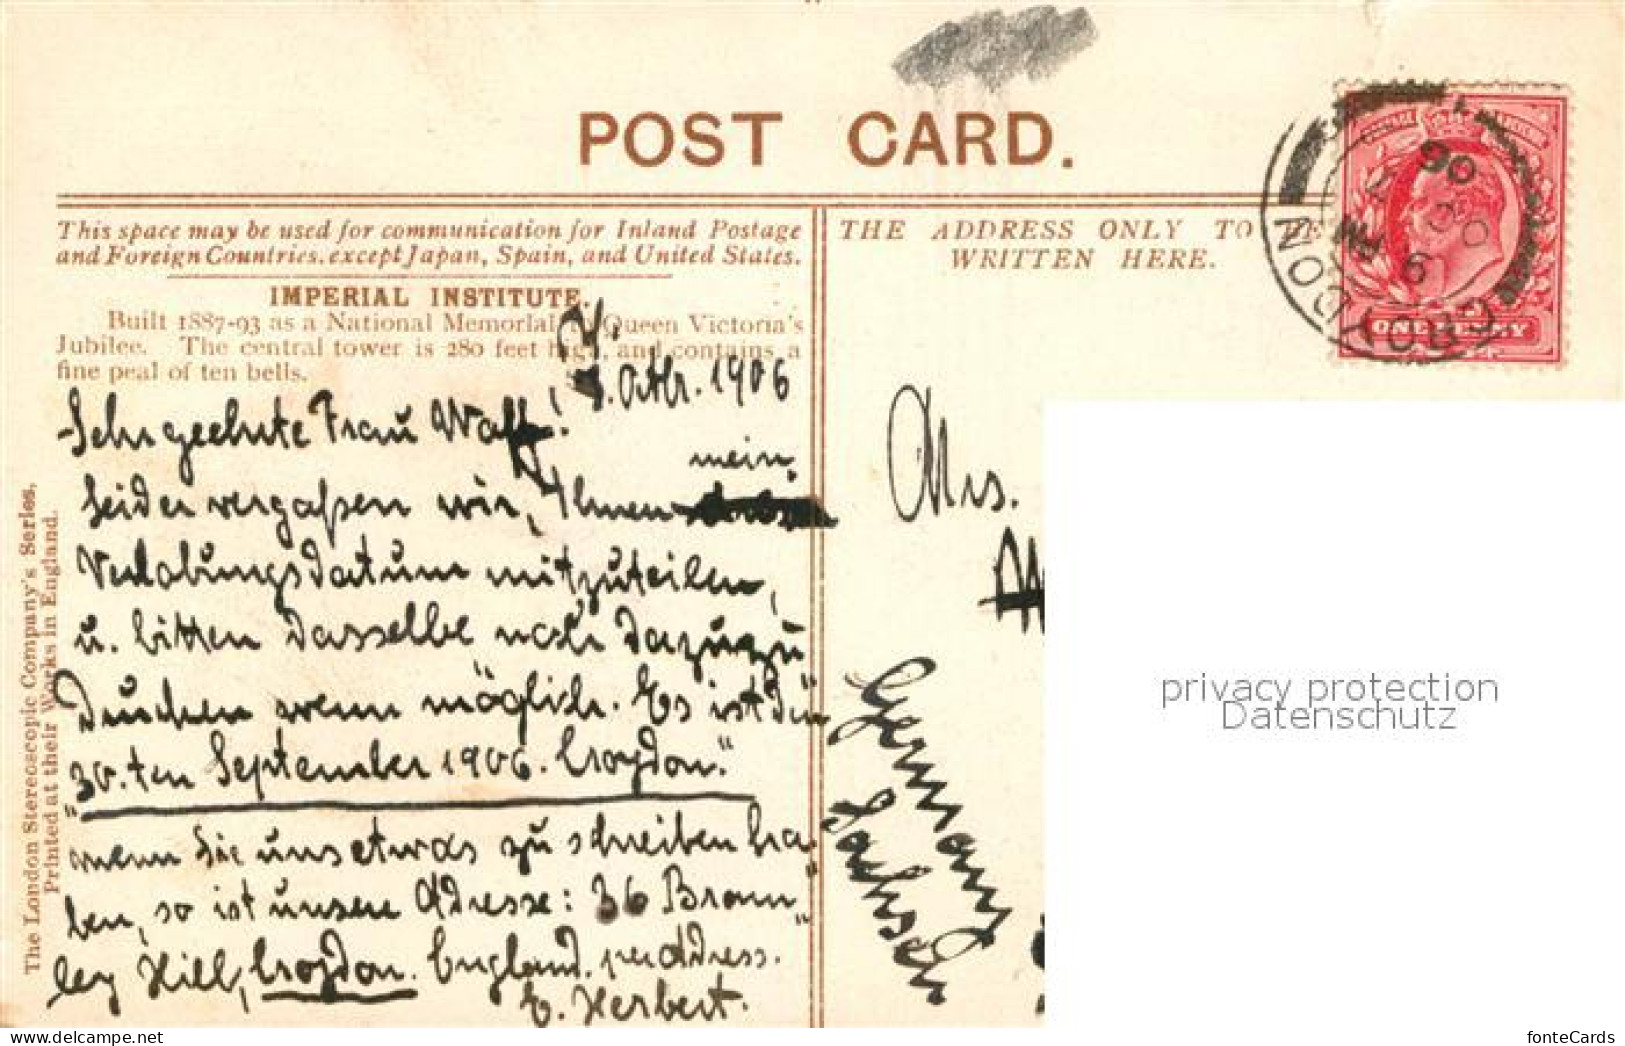 POST CARD.
This space may be used for communication for Inland Postage
and Foreign Countries, except Japan, Spain, and United States.
THE ADDRESS ONLY TO BE
WRITTEN HERE.
IMPERIAL INSTITUTE.
Built 1887-93 as a National Memorial Queen Victoria's
Jubilee. The central tower is 280 feet high, and contains a
fine peal of ten bells.
Octbr. 1906
Sehr geehrte Frau Wolff!
mein
Leider vergaßen wir, Ihnen
Verlobungsdatum mitzuteilen,
u. bitten dasselbe noch dazuzu
drucken wenn möglich. Es ist der
"30.ten September 1906. Croydon."
wenn Sie uns etwas zu schreiben ha-
ben, so ist unsere Adresse: 36 Bram
ley Hill, Croydon. England. per Adress.
E. Herbert.
The London Stereoscopic Company's Series.
Printed at their Works in England.
Mrs.
Germany
Sachsen
CROYDON
9 PM
OC
06
ONE PENNY
privacy protection
Datenschutz
fonteCards